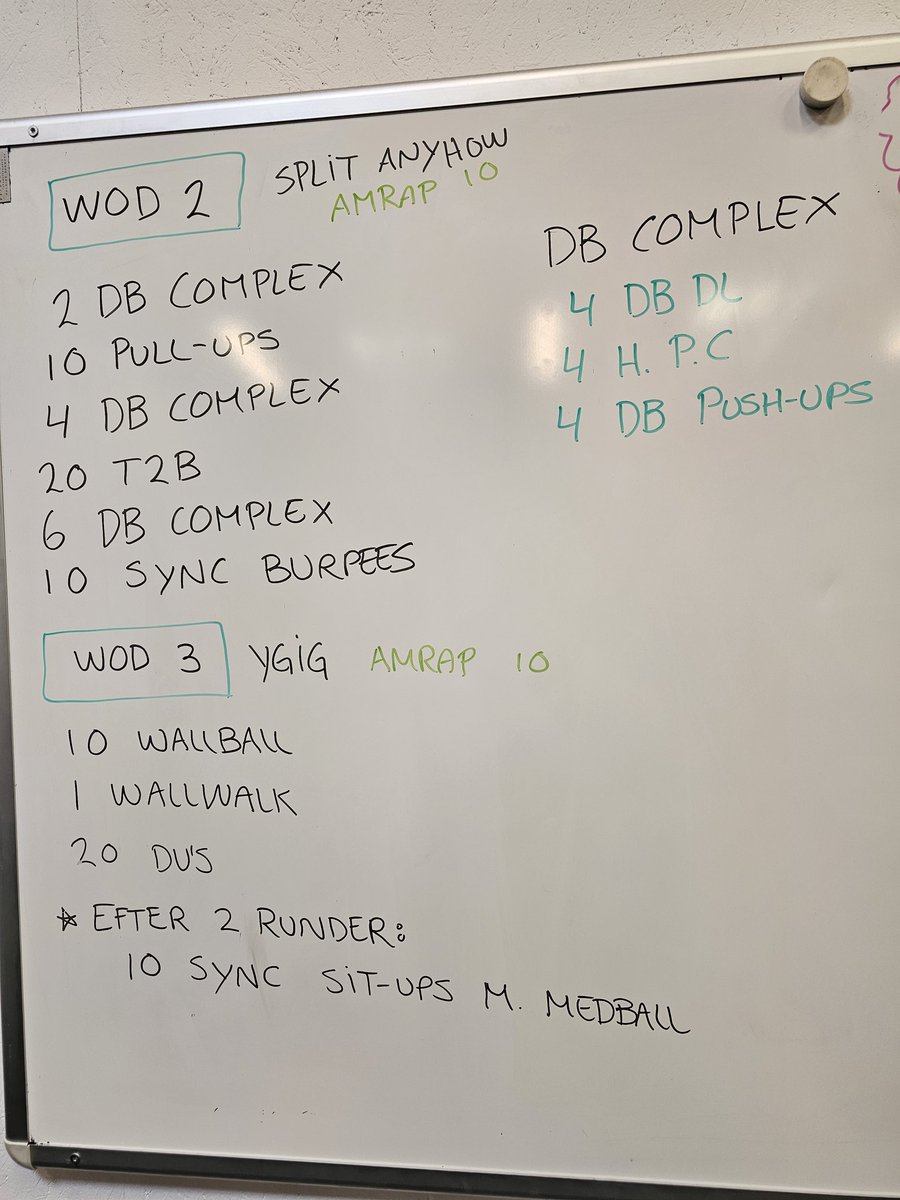 WOD 2
SPLIT ANYHOW
AMRAP 10
2 DB COMPLEX
10 PULL-UPS
4 DB COMPLEX
20 T2B
6 DB COMPLEX
10 SYNC BURPEES
DB COMPLEX
4 DB DL
4 H. P.C
4 DB PUSH-UPS
WOD 3 YGIG AMRAP 10
10 WALLBALL
1 WALLWALK
20 DU'S
* EFTER 2 RUNDER:
10 SYNC SIT-UPS M. MEDBALL